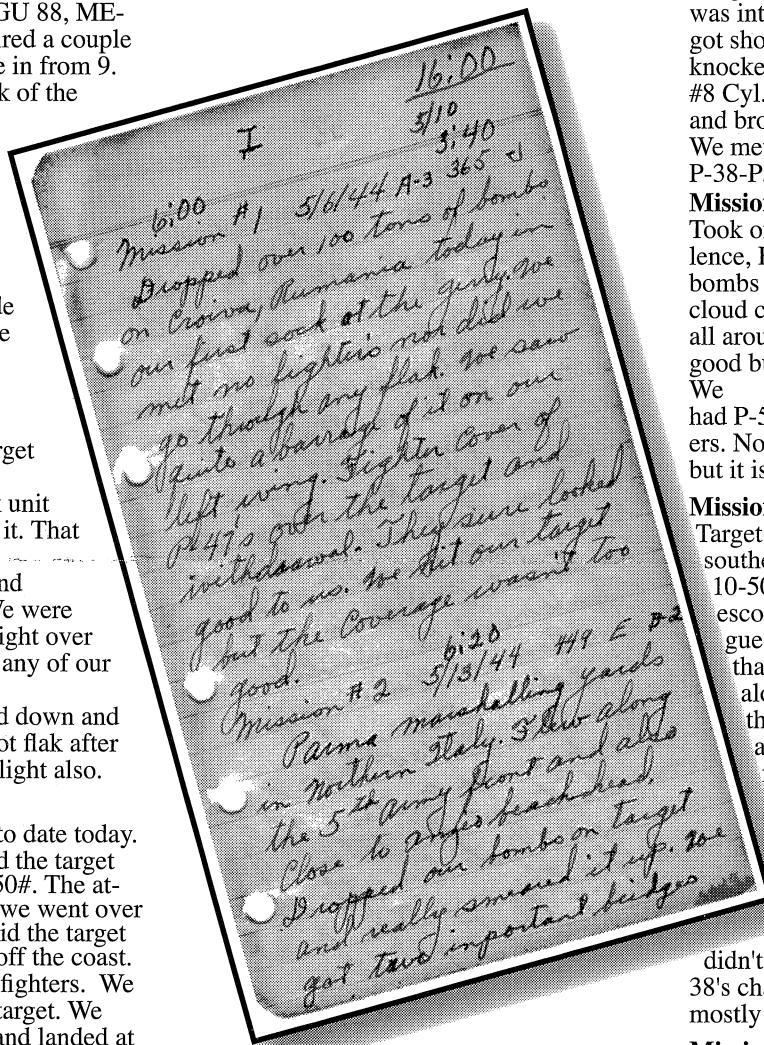 GU 88, ME-
ired a couple
e in from 9.
k of the
le
e
rget
unit
it. That
nd
Ve were
ight over
any of our
d down and
ot flak after
light also.
to date today.
d the target
50#. The at-
we went over
id the target
off the coast.
fighters. We
target. We
and landed at
16:00
I
5/10
3:40
6:00
Mission #1 5/6/44 A-3 365
Dropped over 100 tons of bombs
on Croiva, Rumania today in
our first sock at the gerry. We
met no fighters nor did we
go through any flak. We saw
quite a barrage of it on our
left wing. Fighter cover of
P-47's over the target and
withdrawal. They sure looked
good to us. We hit our target
but the Coverage wasn't too
good.
6:20
Mission #2 5/13/44 449 E
Parma marshalling yards
in Northern Italy. Flew along
the 5th Army front and also
Close to beachhead.
Dropped our bombs on target
and really smeared it up. We
got two inportant bridges
was int
got sho
knocke
#8 Cyl.
and bro
We met
P-38-P
Mission
Took of
lence, F
bombs
cloud c
all arou
good bu
We
had P-5
ers. No
but it is
Mission
Target
southe
10-50
esco
gue
tha
alo
th
a
didn't
38's cha
mostly